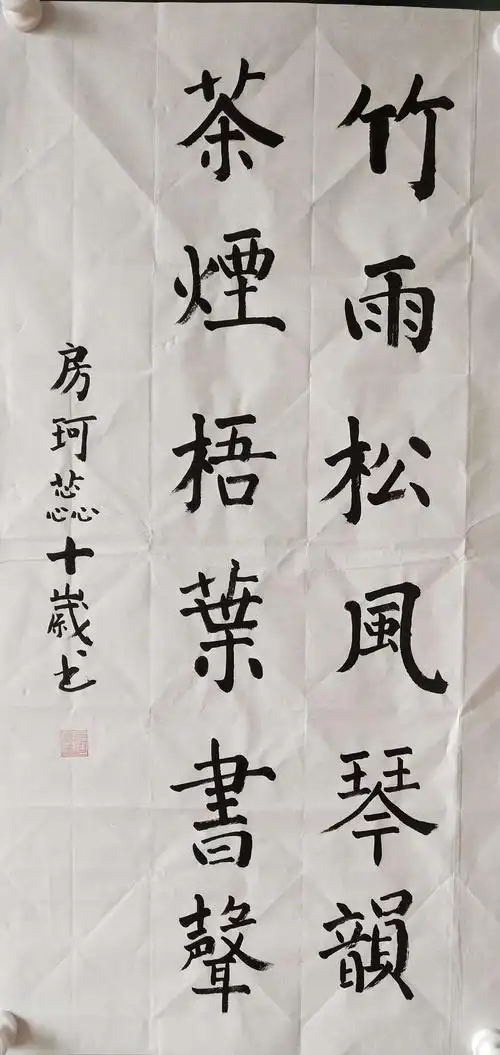 竹雨松風琴韻
茶煙梧葉書聲
房珂蕊十歲书